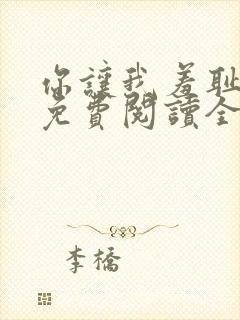 你讓我羞耻
免費閱讀全
李橋